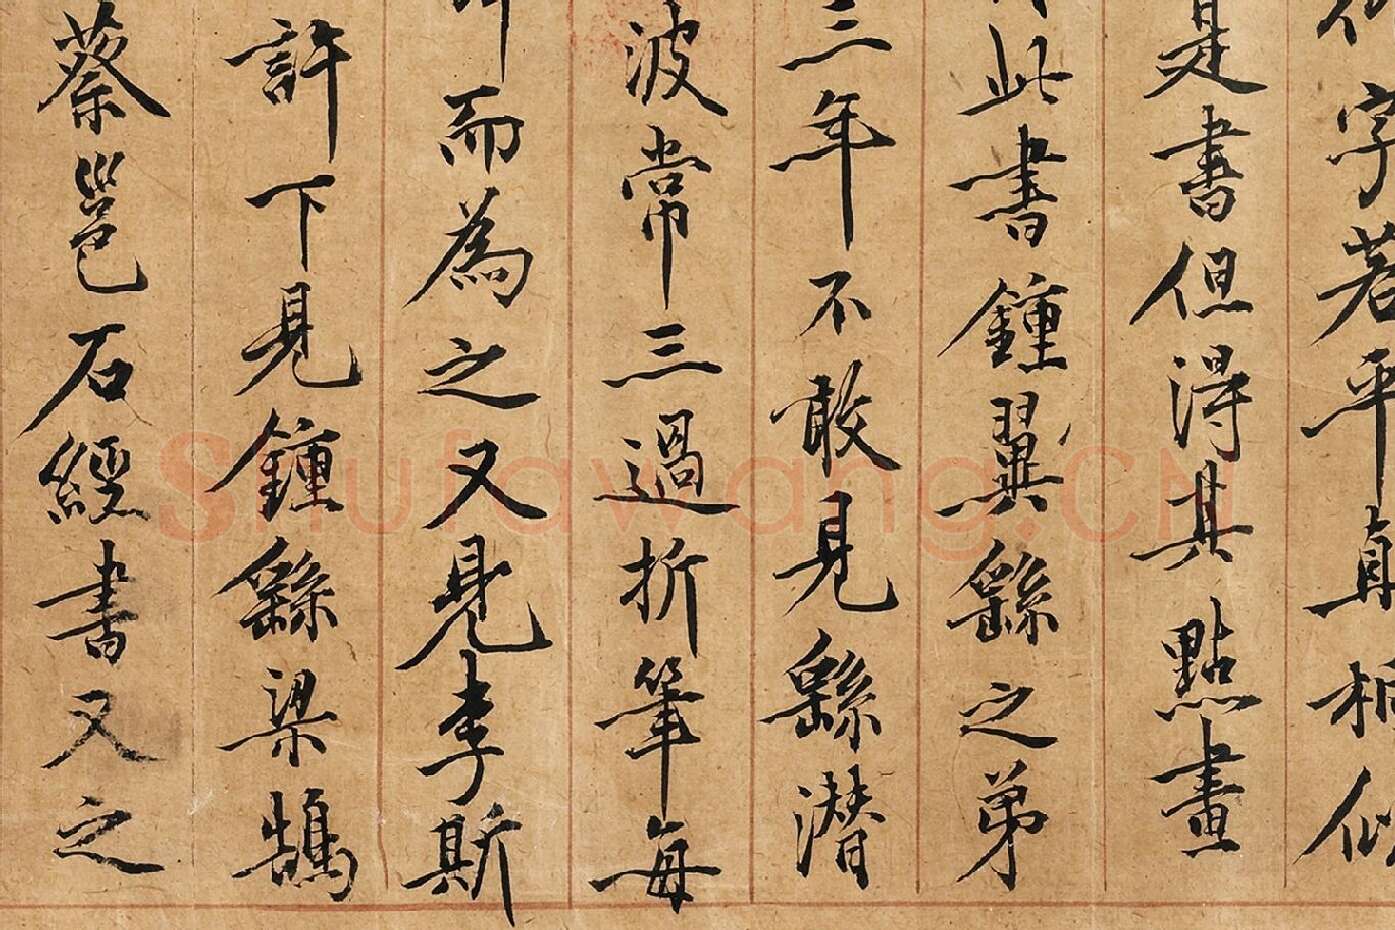 字若平直相似
是書但得其點畫
此書鍾翼繇之弟
三年不敢見繇潛
波常三過折筆每
而為之又見李斯
許下見鍾繇梁鵠
蔡邕石經書又之
Shufawang.CN